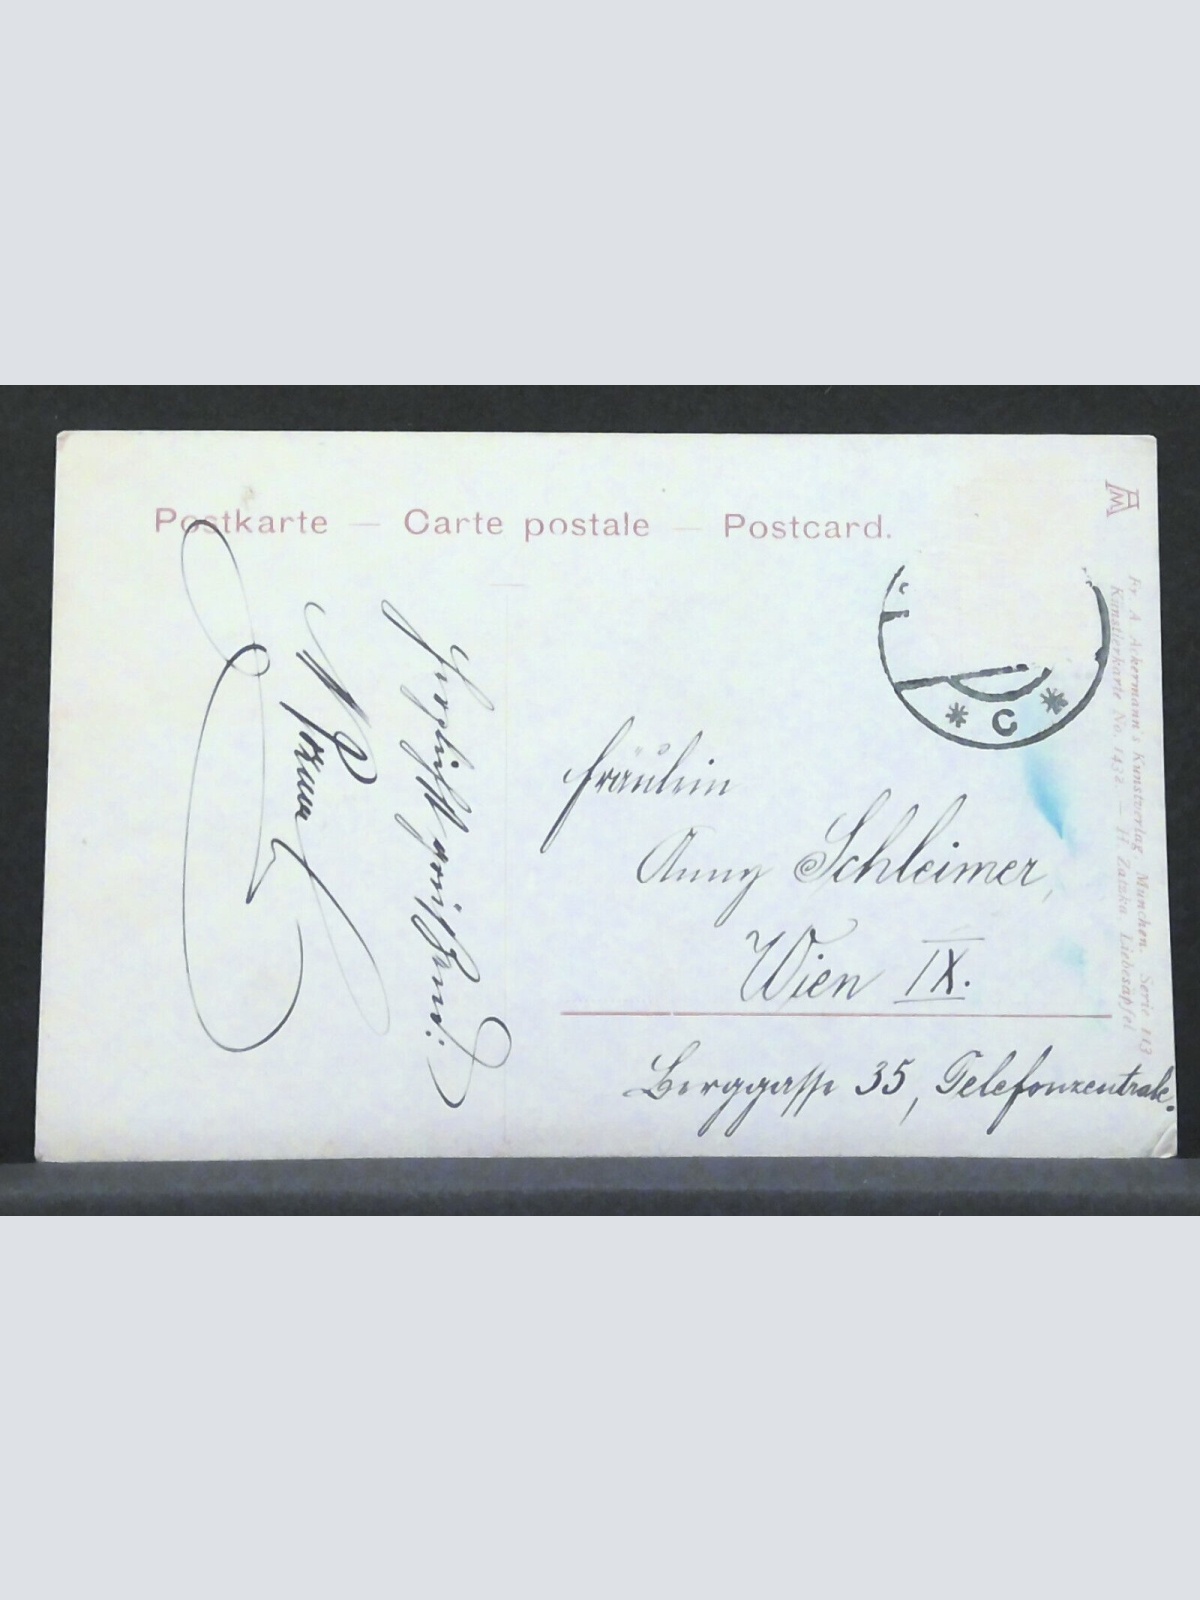 Postkarte — Carte postale — Postcard.
Herzlichst grüßend:
Fräulein
Anny Schleimer,
Wien IX.
Berggasse 35, Telefonzentrale.
C
Fr. A. Ackermann's Kunstverlag, München. Serie 113
Künstlerkarte No. 1432. — H. Zatzka, Liebesäpfel